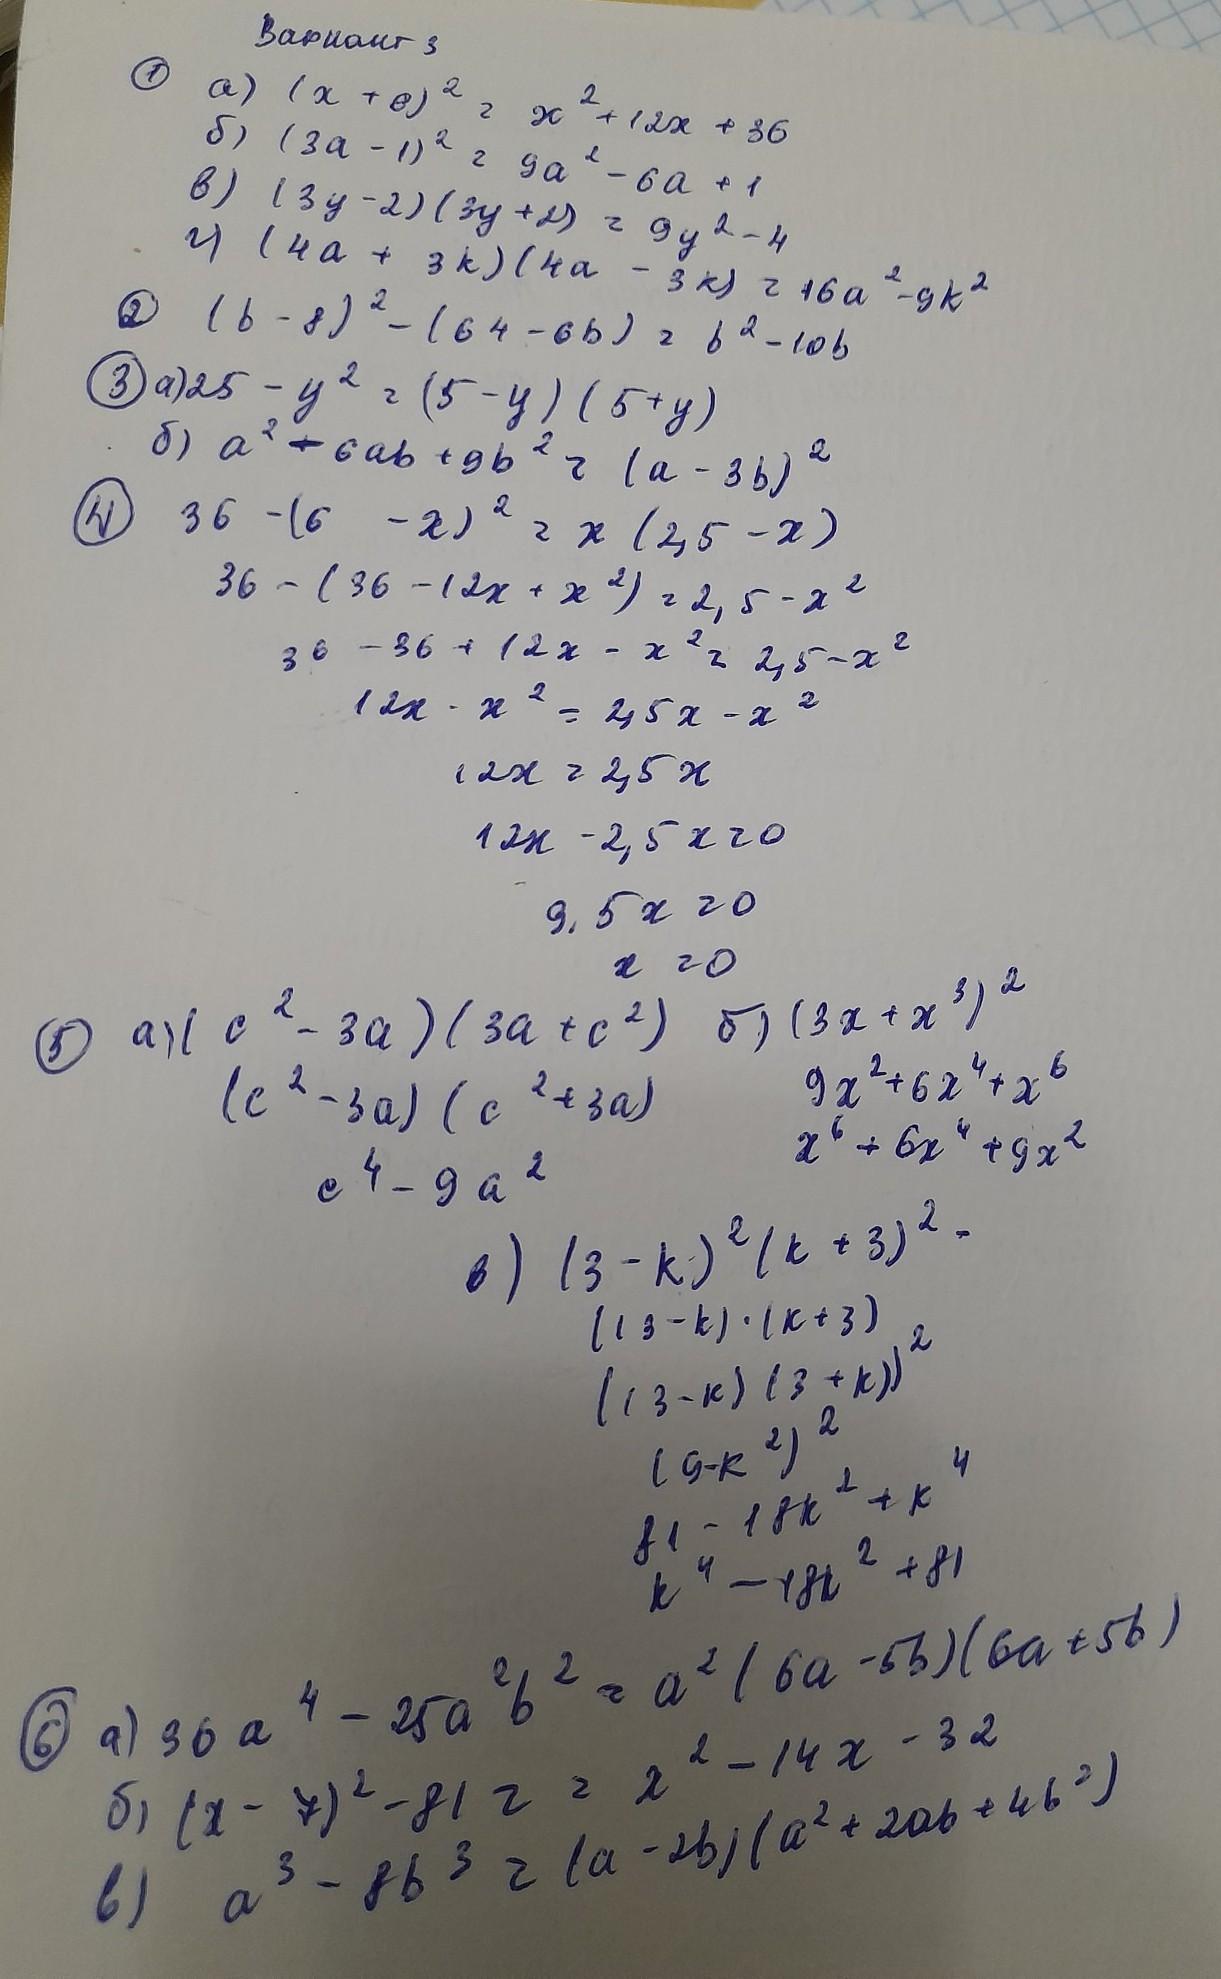 Вариант 3
① а) (x + 6)² = x² + 12x + 36
б) (3a - 1)² = 9a² - 6a + 1
в) (3y - 2)(3y + 2) = 9y² - 4
г) (4a + 3k)(4a - 3k) = 16a² - 9k²
② (b - 8)² - (64 - 6b) = b² - 10b
③ а) 25 - y² = (5 - y)(5 + y)
б) a² - 6ab + 9b² = (a - 3b)²
④ 36 - (6 - x)² = x (2,5 - x)
36 - (36 - 12x + x²) = 2,5 - x²
36 - 36 + 12x - x² = 2,5 - x²
12x - x² = 2,5x - x²
12x = 2,5x
12x - 2,5x = 0
9,5x = 0
x = 0
⑤ а) (c² - 3a)(3a + c²)
(c² - 3a)(c² + 3a)
c⁴ - 9a²
б) (3x + x³)²
9x² + 6x⁴ + x⁶
x⁶ + 6x⁴ + 9x²
в) (3 - k)² (k + 3)² -
((3 - k) · (k + 3)
((3 - k)(3 + k))²
(9 - k²)²
81 - 18k² + k⁴
k⁴ - 18k² + 81
⑥ а) 36a⁴ - 25a²b² = a² (6a - 5b)(6a + 5b)
б) (x - 7)² - 81 = = x² - 14x - 32
в) a³ - 8b³ = (a - 2b)(a² + 2ab + 4b²)